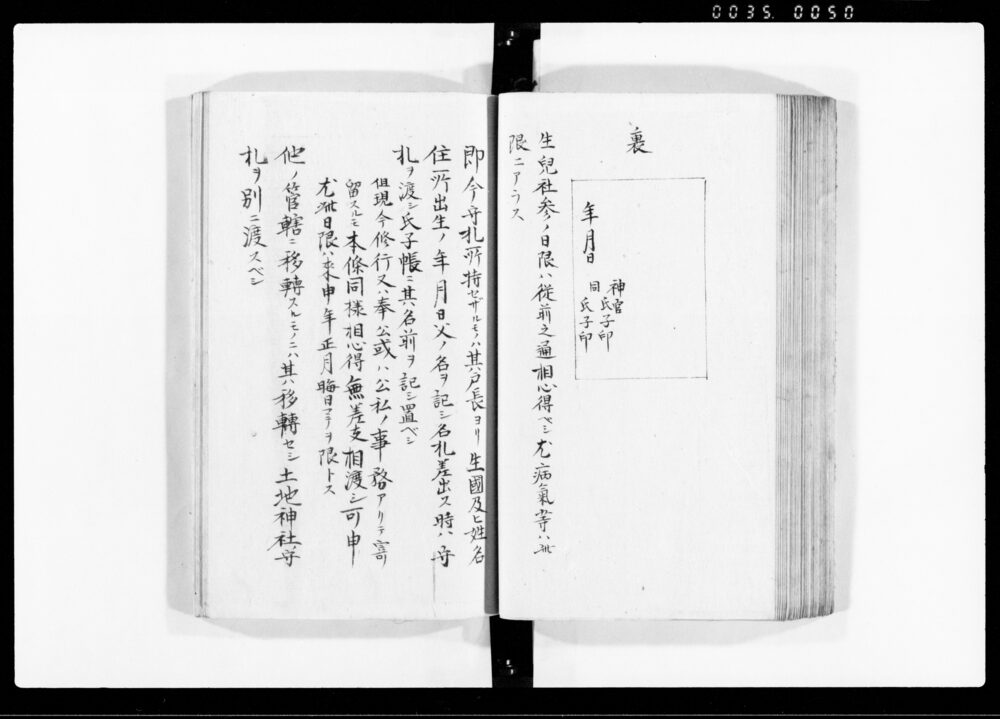 0035. 0050
裏
年月日
神官
氏子印
同
氏子印
生兒社参ノ日限ハ從前之通相心得ベシ尤病氣等ハ此
限ニアラス
即今守札所持セザルモノハ其戸長ヨリ生國及ヒ姓名
住所出生ノ年月日父ノ名ヲ記シ名札差出ス時ハ守
札ヲ渡シ氏子帳ニ其名前ヲ記シ置ベシ
但現今修行又ハ奉公或ハ公私ノ事務アリテ寄
留スルモ本條同様相心得無差支相渡シ可申
尤此日限ハ来申年正月晦日マテヲ限トス
他ノ管轄ニ移轉スルモノニハ其移轉セシ土地神社守
札ヲ別ニ渡スベシ